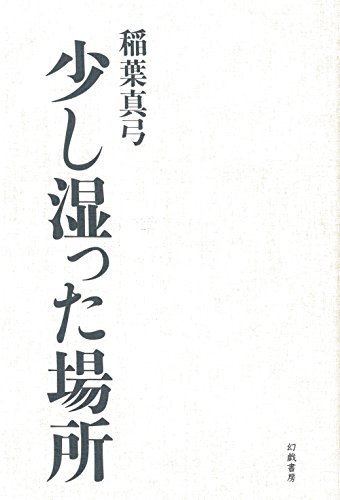 稲葉真弓
少し湿った場所
幻戯書房